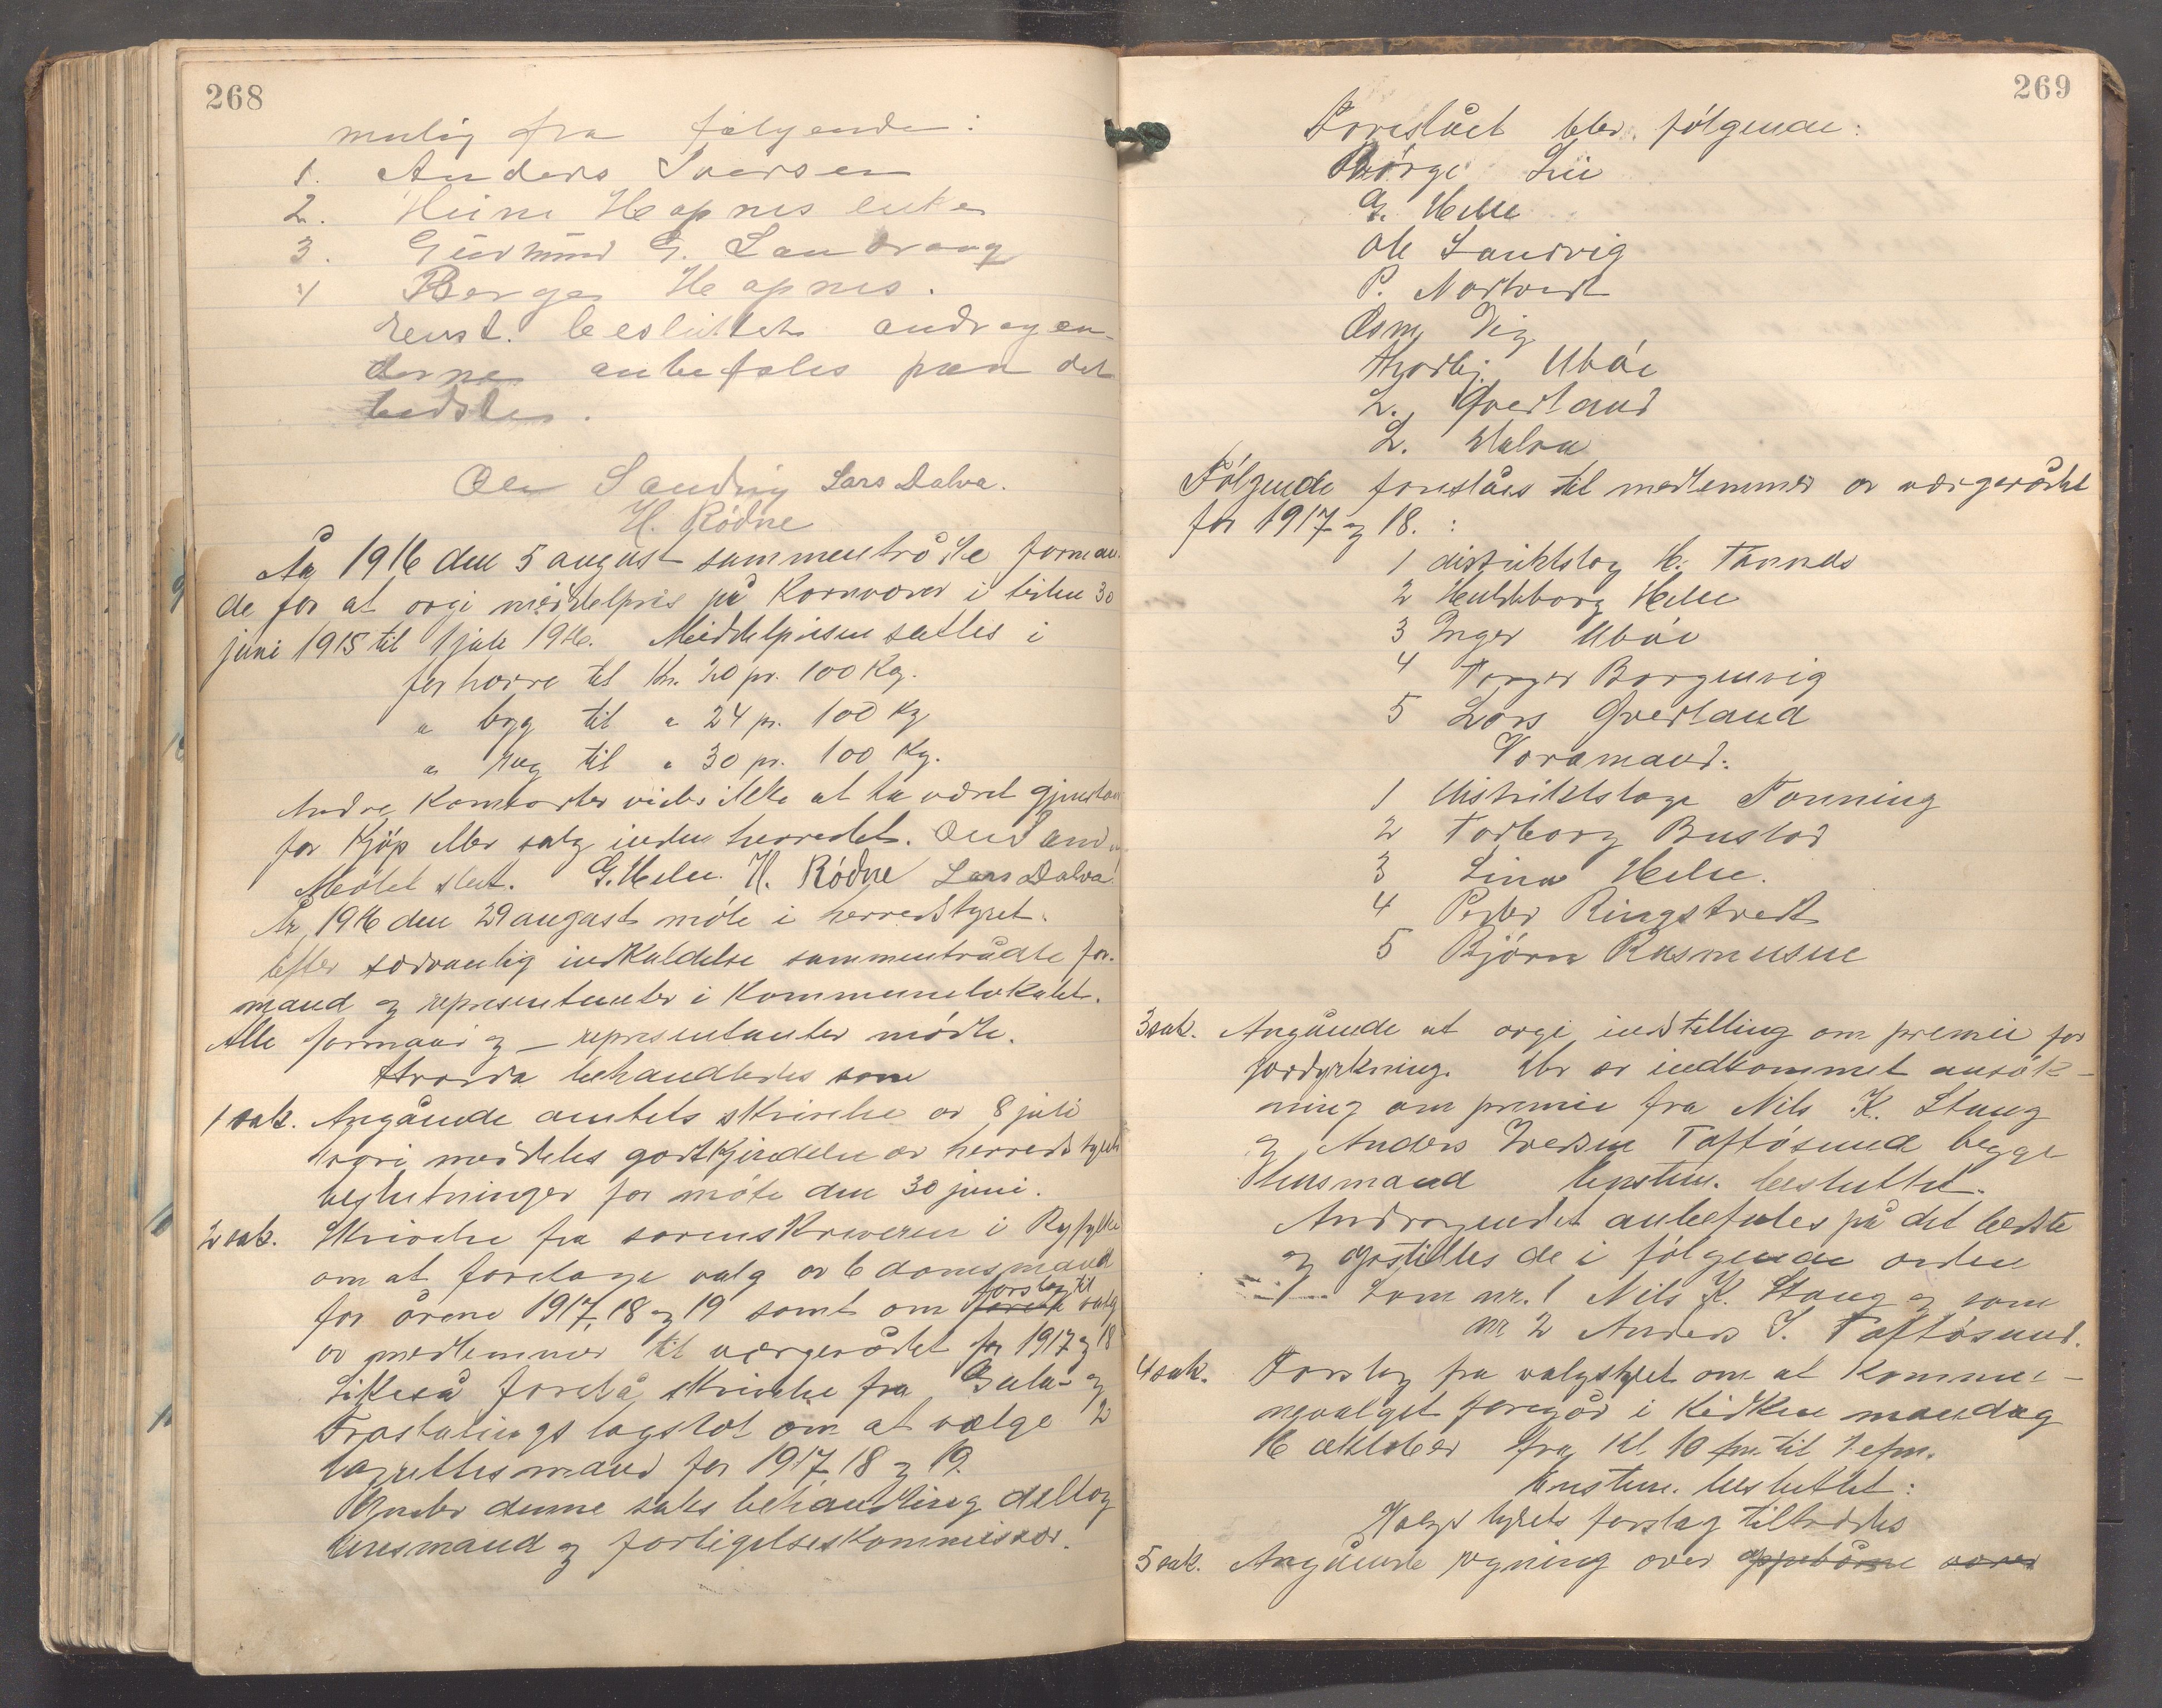 268
mulig fra følgende:
1. Anders Iversen
2. Heine Hapnes enke
3. Gudmund G. Sandvang
4 Børge Hapnes.
Enst. besluttet andragen-
derne anbefales paa det
bedste.
Ole Sandvig Lars Dalva.
H. Rødne
År 1916 den 5 august sammentrådte forman-
de for at avgi middelpris på Kornvarer i tiden 30
juni 1915 til 1 juli 1916. Middelprisen sattes i
for havre til Kr. 20 pr. 100 Kg.
" byg til " 24 pr. 100 Kg
" rug til " 30 pr. 100 Kg.
Andre Kornsorter vides ikke at ha været gjenstan
for Kjøp eller salg inden herredet. Ole Sandv
Mødet slut. G. Helle. H. Rødne Lars Dalva.
År 1916 den 29 august møte i herredstyret.
Efter sedvanlig indkaldelse sammentrådte for-
mænd og representanter i Kommunelokalet.
Alle formænd og – representanter mødte.
Hvorda behandledes som
1 sak. Angående amtets skrivelse av 8 juli
hvori meddeles godkjendelse av herredstyrets
beslutninger for møte den 30 juni.
2 sak. Skrivelse fra sorenskriveren i Ryfylke
om at foretage valg av 6 domsmænd
for årene 1917, 18 og 19 samt om forslag til valg
av medlemmer til værgerådet for 1917 og 18
Likeså forelå skrivelse fra Gula- og
Frostatings lagstol om at vælge 2
lagrettesmænd for 1917, 18 og 19.
Under denne saks behandling deltog
lensmand og forligelseskommissær.
269
Foreslået blev følgende:
Børge Lie
G. Helle
Ole Sandvig
P. Nordtveit
Osm Vig
Thorbj. Ubøe
L. Qverland
L. Dalva
Følgende foreslåes til medlemmer av værgerådet
for 1917 og 18. :
1 distriktslæg H. Tønnes
2 Huldeborg Helle
3 Inger Ubøe
4 Torger Borgenvig
5 Lars Qverland
Varamænd:
1 Distriktslæge Tonning
2 Torborg Bustad
3 Lina Helle.
4 Peder Ringstveit
5 Bjørn Rasmussen
3 sak. Angående at avgi indstilling om premie for
jorddyrkning. Der er indkommet ansøk-
ning om premie fra Nils K. Stang
og Anders Iversen Toftøsund begge
husmænd Enstem. besluttet.
Andragendet anbefales på det bedste
og opstilles de i følgende orden
Som nr. 1 Nils K. Stang og som
nr 2 Anders I. Toftøsund.
4 sak. Forslag fra valgstyret om at Kommu-
nevalget foregår i Kirken mandag
16 oktober fra Kl 10 fm. til 7 efm.
Enstem. besluttet:
Valgstyrets forslag tiltrædes
5 sak. Angående regning over oppebårne varer